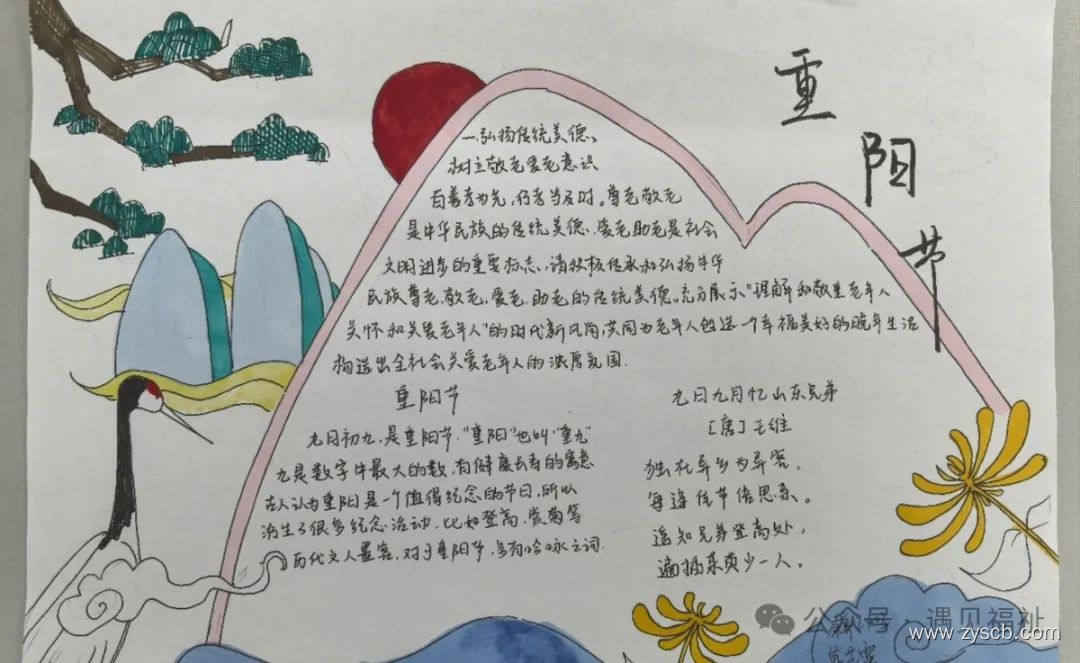 重阳节
一、弘扬传统美德、
树立敬老爱老意识
百善孝为先,行孝当及时。尊老敬老
是中华民族的传统美德、爱老助老是社会
文明进步的重要标志,请积极传承和弘扬中华
民族尊老、敬老,爱老、助老的传统美德。充分展示“理解和敬重老年人
关怀和关爱老年人”的时代新风尚,共同为老年人创造一个幸福美好的晚年生活
构造出全社会关爱老年人的浓厚氛围.
重阳节
九月初九,是重阳节,“重阳”也叫“重九”
九是数字中最大的数,有健康长寿的寓意
古人认为重阳是一个值得纪念的节日,所以
派生了很多纪念活动,比如登高,赏菊等
历代文人墨客,对于重阳节,多有吟咏之词.
九日九月忆山东兄弟
[唐]王维
独在异乡为异客,
每逢佳节倍思亲。
遥知兄弟登高处,
遍插茱萸少一人。
公众号·遇见福祉
www.zyscb.com